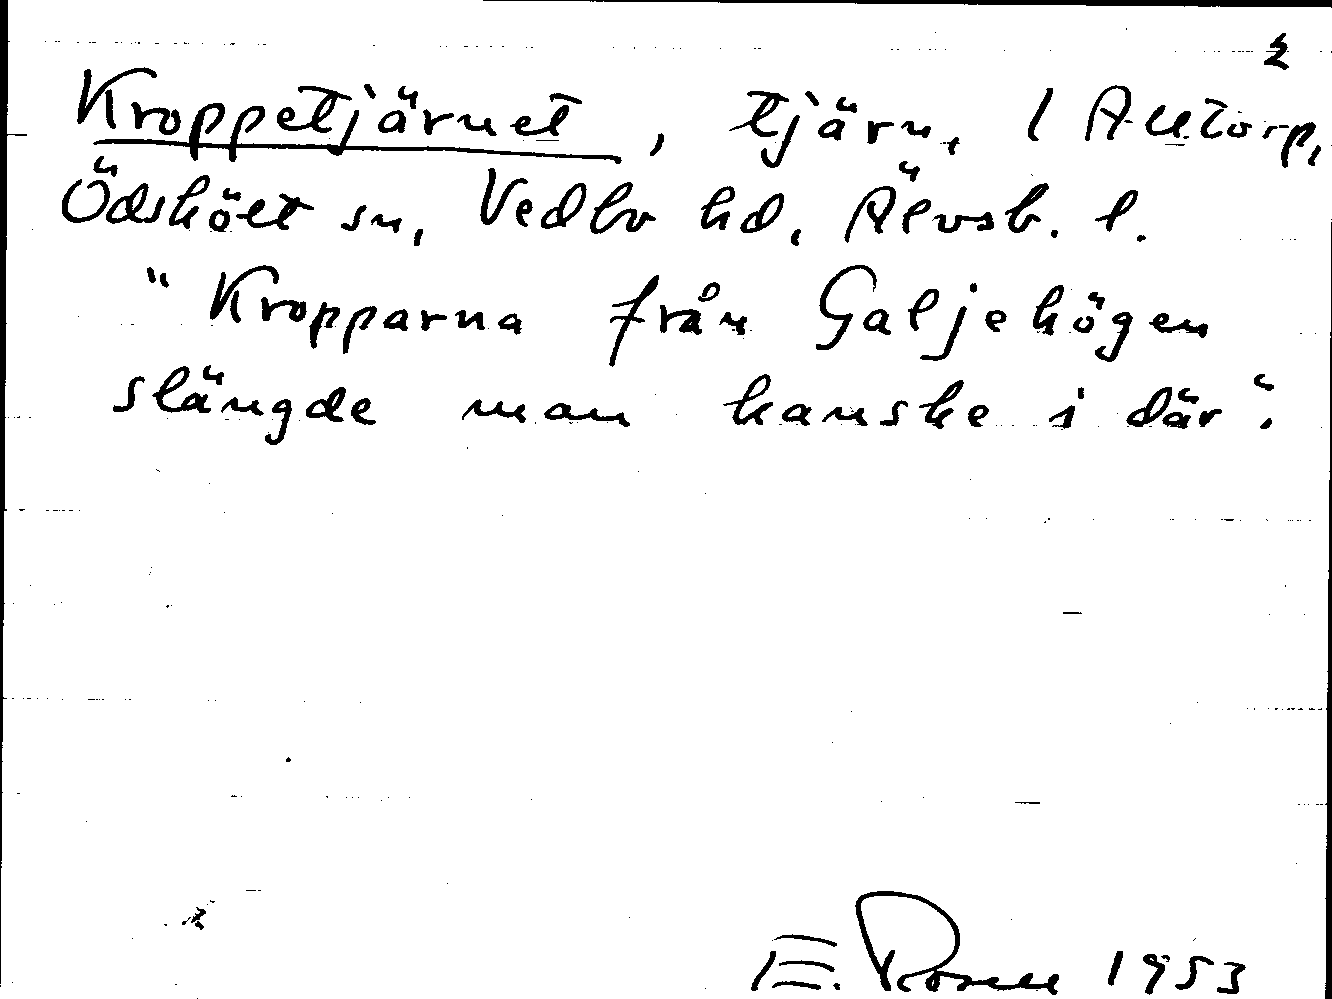 2
Kroppetjärnet, tjärn, 1 Alltorp,
Ödskölt sn, Vedbo hd, Älvsb. l.
"Kropparna från Galjehögen
slängde man kanske i där".
E. Rosell 1953